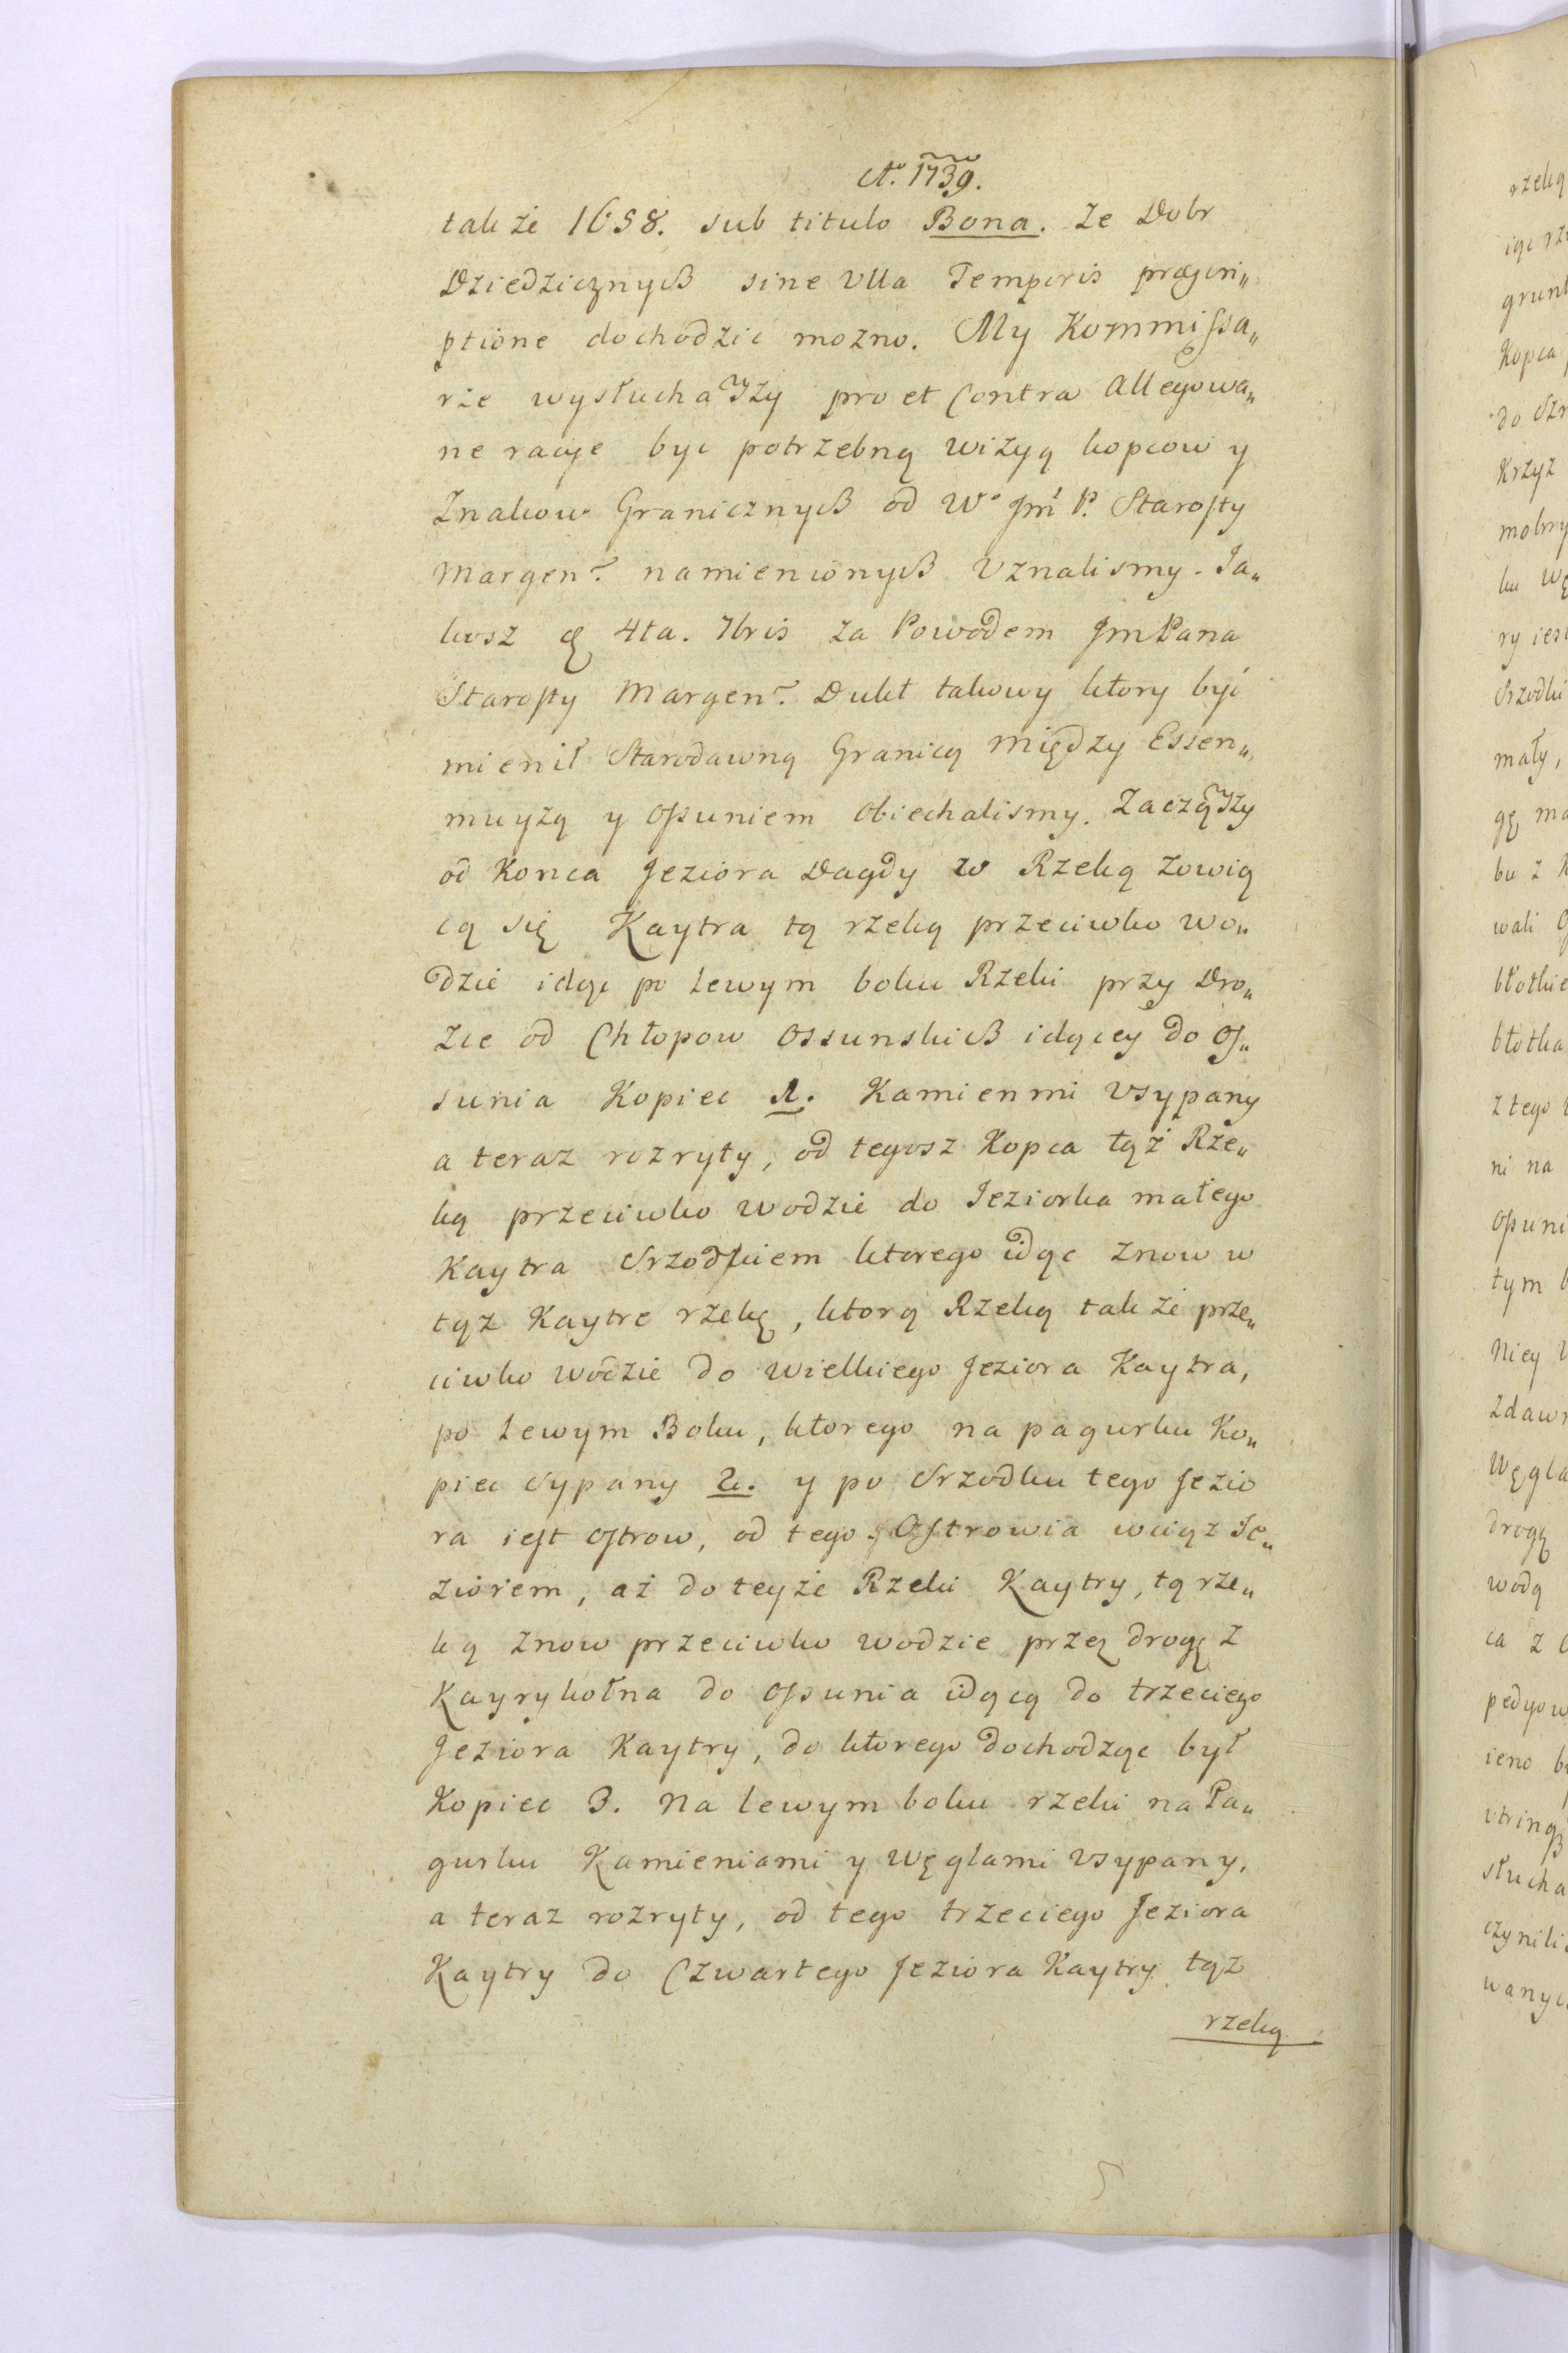 Aō. 1739.
także 1658. sub titulo Bona. Ze Dobr
Dziedzicznych sine Vlla Temporis præscri„
ptione dochodzić mozno. My Kommissa„
rze wysłuchawszy pro et Contra Allegowa„
ne racye byc potrzebną wizyą kopcow y
Znakow Granicznych od Wo Jmć P. Starosty
Margen. namienionych Vznalismy. Ja„
kosz die 4ta. 7bris za Powodem Jm Pana
Starosty Margen. Dukt takowy ktory być
mienił Starodawną Granicą między Essen„
muyzą y Ossuniem obiechalismy. Zacząwszy
od Konca Jeziora Dagdy w Rzeką zowią
cą się Kaytra tą rzeką przeciwko wo„
dzie idąc po lewym boku Rzeki przy Dro„
ze od Chłopow Ossunskich idącey do Os„
sunia Kopiec 1. Kamienmi vsypany
a teraz rozryty, od tegosz Kopca tąż Rze„
ką przeciwko wodzie do Jeziorka małego
Kaytra Srzodkiem ktorego idąc znow w
tąz Kaytre rzekę, ktorą Rzeką także prze„
ciwko wodzie do wielkiego Jeziora Kaytra,
po lewym Boku, ktorego na pagurku Ko„
piec sypany 2. y po Srzodku tego Jezio
ra iest ostrow, od tego Ostrowia wciąz Je„
ziorem, aż do teyże Rzeki Kaytry, tą rze„
ką znow przeciwko wodzie przez drogę z
Kayrykołna do Ossunia idącą do trzeciego
Jeziora Kaytry, do ktorego dochodząc był
Kopiec 3. Na lewym boku rzeki na Pa„
gurku Kamieniami y węglami vsypany,
a teraz rozryty, od tego trzeciego Jeziora
Kaytry do Czwartego Jeziora Kaytry tąz
rzeką